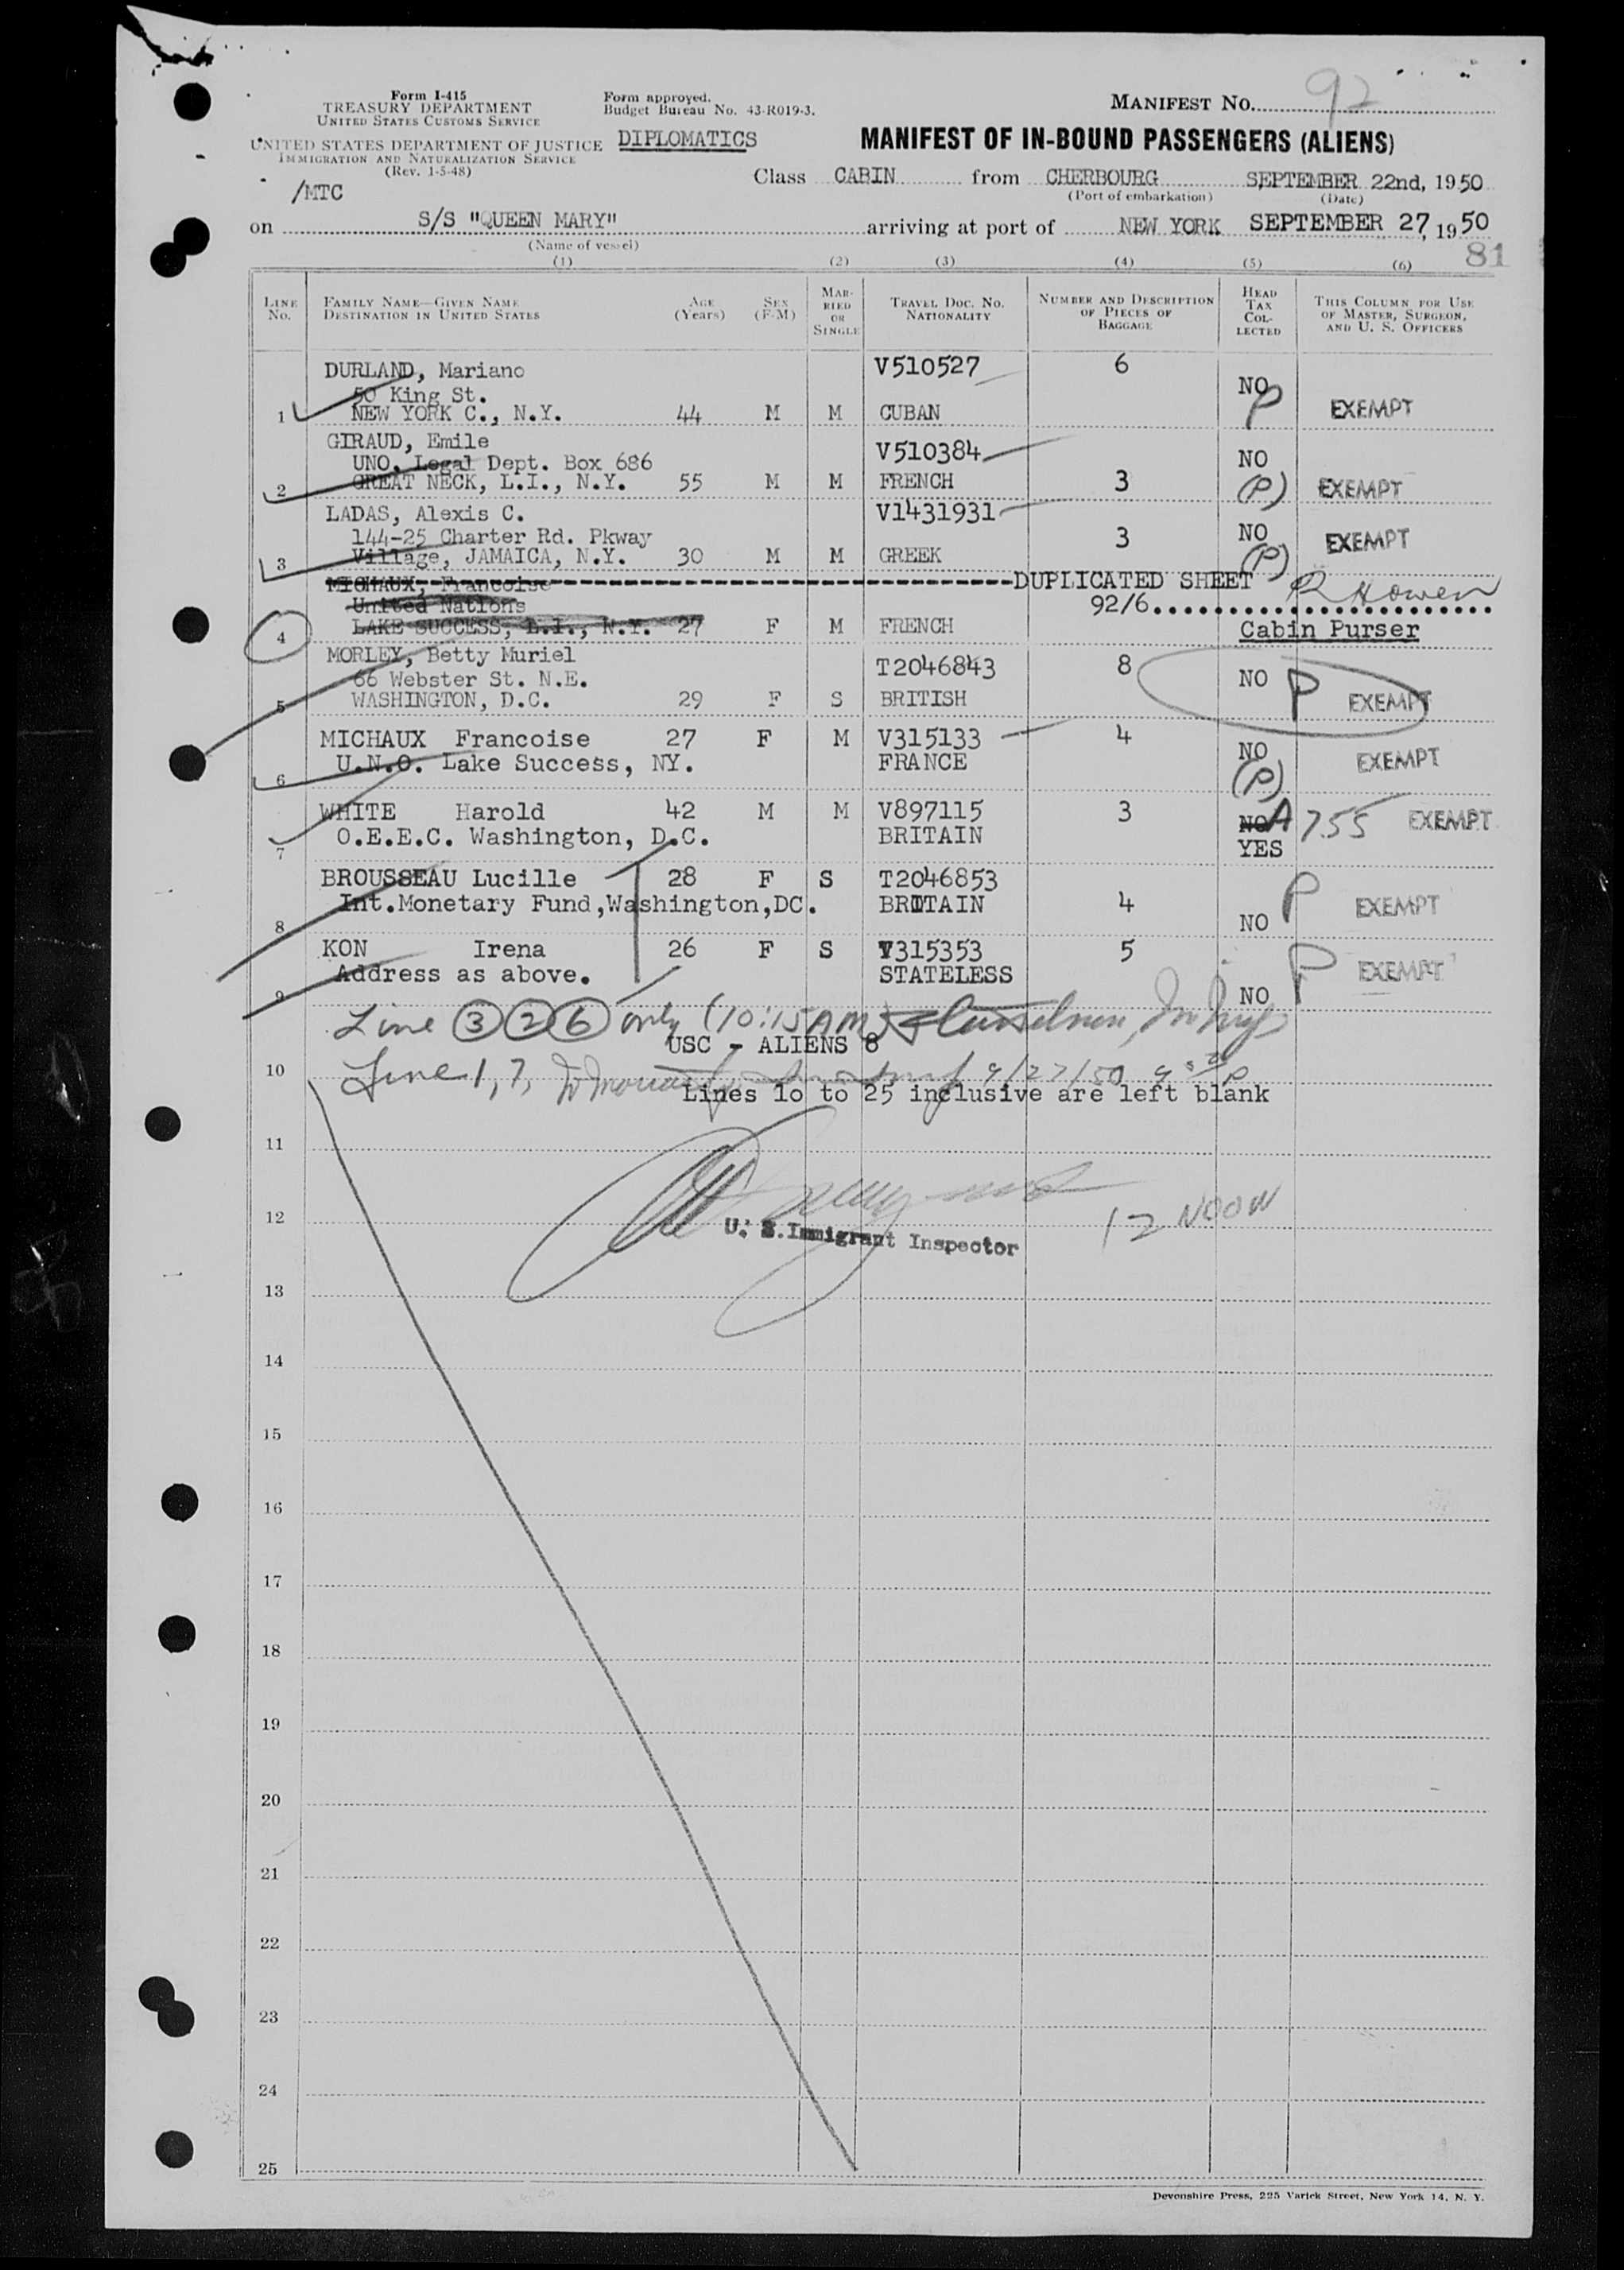 Form I-415
TREASURY DEPARTMENT
UNITED STATES CUSTOMS SERVICE
UNITED STATES DEPARTMENT OF JUSTICE
IMMIGRATION AND NATURALIZATION SERVICE
(Rev. 1-5-48)
/MTC
Form approved.
Budget Bureau No. 43-R019-3.
DIPLOMATICS
MANIFEST NO. 92
MANIFEST OF IN-BOUND PASSENGERS (ALIENS)
Class CABIN from CHERBOURG SEPTEMBER 22nd, 1950
(Port of embarkation) (Date)
on S/S "QUEEN MARY" arriving at port of NEW YORK SEPTEMBER 27, 1950
(Name of vessel)
81
(1) (2) (3) (4) (5) (6)
LINE No. FAMILY NAME—GIVEN NAME DESTINATION IN UNITED STATES AGE (Years) SEX (F-M) MARRIED OR SINGLE TRAVEL DOC. NO. NATIONALITY NUMBER AND DESCRIPTION OF PIECES OF BAGGAGE HEAD TAX COLLECTED THIS COLUMN FOR USE OF MASTER, SURGEON, AND U. S. OFFICERS
DURLAND, Mariano V510527 6
50 King St. NO
1 NEW YORK C., N.Y. 44 M M CUBAN P EXEMPT
GIRAUD, Emile V510384
UNO. Legal Dept. Box 686 NO
2 GREAT NECK, L.I., N.Y. 55 M M FRENCH 3 (P) EXEMPT
LADAS, Alexis C. V1431931
144-25 Charter Rd. Pkway 3 NO EXEMPT
3 Village, JAMAICA, N.Y. 30 M M GREEK (P)
MICHAUX, Francoise DUPLICATED SHEET
United Nations 92/6
4 LAKE SUCCESS, L.I., N.Y. 27 F M FRENCH Cabin Purser
MORLEY, Betty Muriel T2046843 8
66 Webster St. N.E. NO P
5 WASHINGTON, D.C. 29 F S BRITISH EXEMPT
MICHAUX Francoise 27 F M V315133 4 NO
6 U.N.O. Lake Success, NY. FRANCE (P) EXEMPT
WHITE Harold 42 M M V897115 3 NO A 755 EXEMPT
7 O.E.E.C. Washington, D.C. BRITAIN YES
BROUSSEAU Lucille 28 F S T2046853 P
8 Int.Monetary Fund,Washington,DC. BRITAIN 4 NO EXEMPT
KON Irena 26 F S V315353 5 P
9 Address as above. STATELESS NO EXEMPT
Line 3 2 6 only (10:15 AM)
USC - ALIENS 8
10 Line 1, 7, 9/27/50
Lines 10 to 25 inclusive are left blank
11
12 U. S. Immigrant Inspector 12 NOON
13
14
15
16
17
18
19
20
21
22
23
24
25
Devonshire Press, 225 Varick Street, New York 14, N. Y.